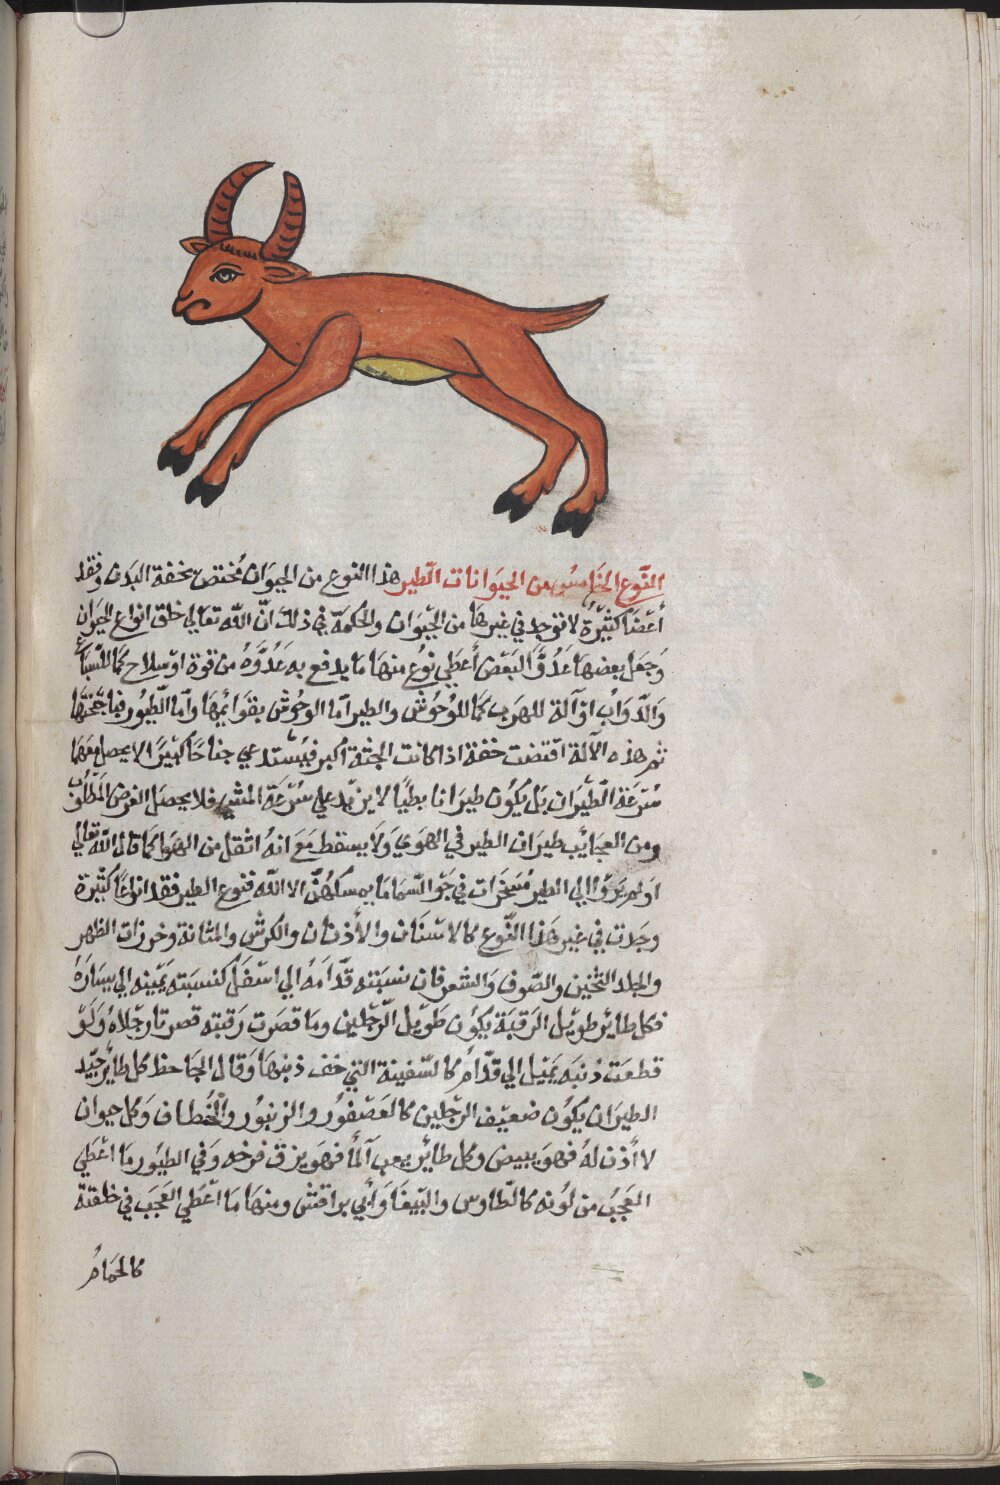 النّوع الخامس من الحيوانات الطير هذا النوع من الحيوان مختص بخفة البدن وفقد
أعضا كثيرة لا توجد في غيرها من الحيوان والحكمة في ذلك انّ الله تعالي خلق انواع الحيوان
وجعل بعضها عدوًّا لبعض أعطي نوع منها ما يدفع به عدوه من قوة او سلاح كما للسباع
والدّواب او آلة للهرب كما للوحوش والطير امّا الوحوش بقوائمها وأما الطيور فباجنحتها
ثم هذه الآلة اقتضت خفة اذا كانت الجثة اكبر فيستدعي جناحًا كبيرًا لا يحصل معها
سرعة الطيران بل يكون طيرانا بطيًا لا يزيد علي سرعة المشي فلا يحصل الغرض المطلوب
ومن العجايب طيران الطير في الهوي ولا يسقط مع انه اثقل من الهوا كما قال الله تعالي
اولم يروا الي الطير مسخرات في جو السما ما يمسكهنّ الا الله فنوع الطير فقد انواعًا كثيرة
وجدت في غير هذا النّوع كالاسنان والأذنان والكرش والمثانة وخرزات الظهر
والجلد الثخين والصوف والشعر فان نسبته قدّامه الي اسفل كنسبته يمينه الي يساره
فكل طاير طويل الرقبة يكون طويل الرّجلين وما قصرت رقبته قصرتا رجلاه ولو
قطعت ذنبه يميل الي قدّام كالسّفينة التي خف ذنبها وقال الجاحظ كل طاير جيّد
الطيران يكون ضعيف الرجلين كالعصفور والزنبور والخطاف وكل حيوان
لا أذن له فهو يبيض وكل طائر يعب المآ فهو يزق فرخه وفي الطيور ما اعطي
العجب من لونه كالطاوس والببغا وأبي براقش ومنها ما اعطي العجب في خلقته
كالحمام